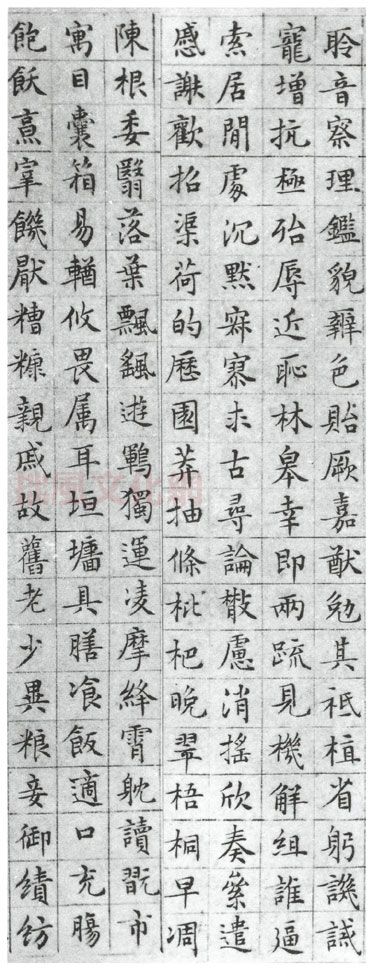 聆音察理鑑貌辯色貽厥嘉猷勉其祗植省躬譏誡
寵增抗極殆辱近恥林皐幸即兩疏見機解組誰逼
索居閒處沉默寂寥求古尋論散慮消搖欣奏累遣
慼謝歡招渠荷的歷園莽抽條枇杷晚翠梧桐早凋
陳根委翳落葉飄颻遊鵾獨運凌摩絳霄耽讀翫市
寓目囊箱易輶攸畏属耳垣墻具膳飡飯適口充腸
飽飫烹宰饑厭糟糠親戚故舊老少異粮妾御績紡